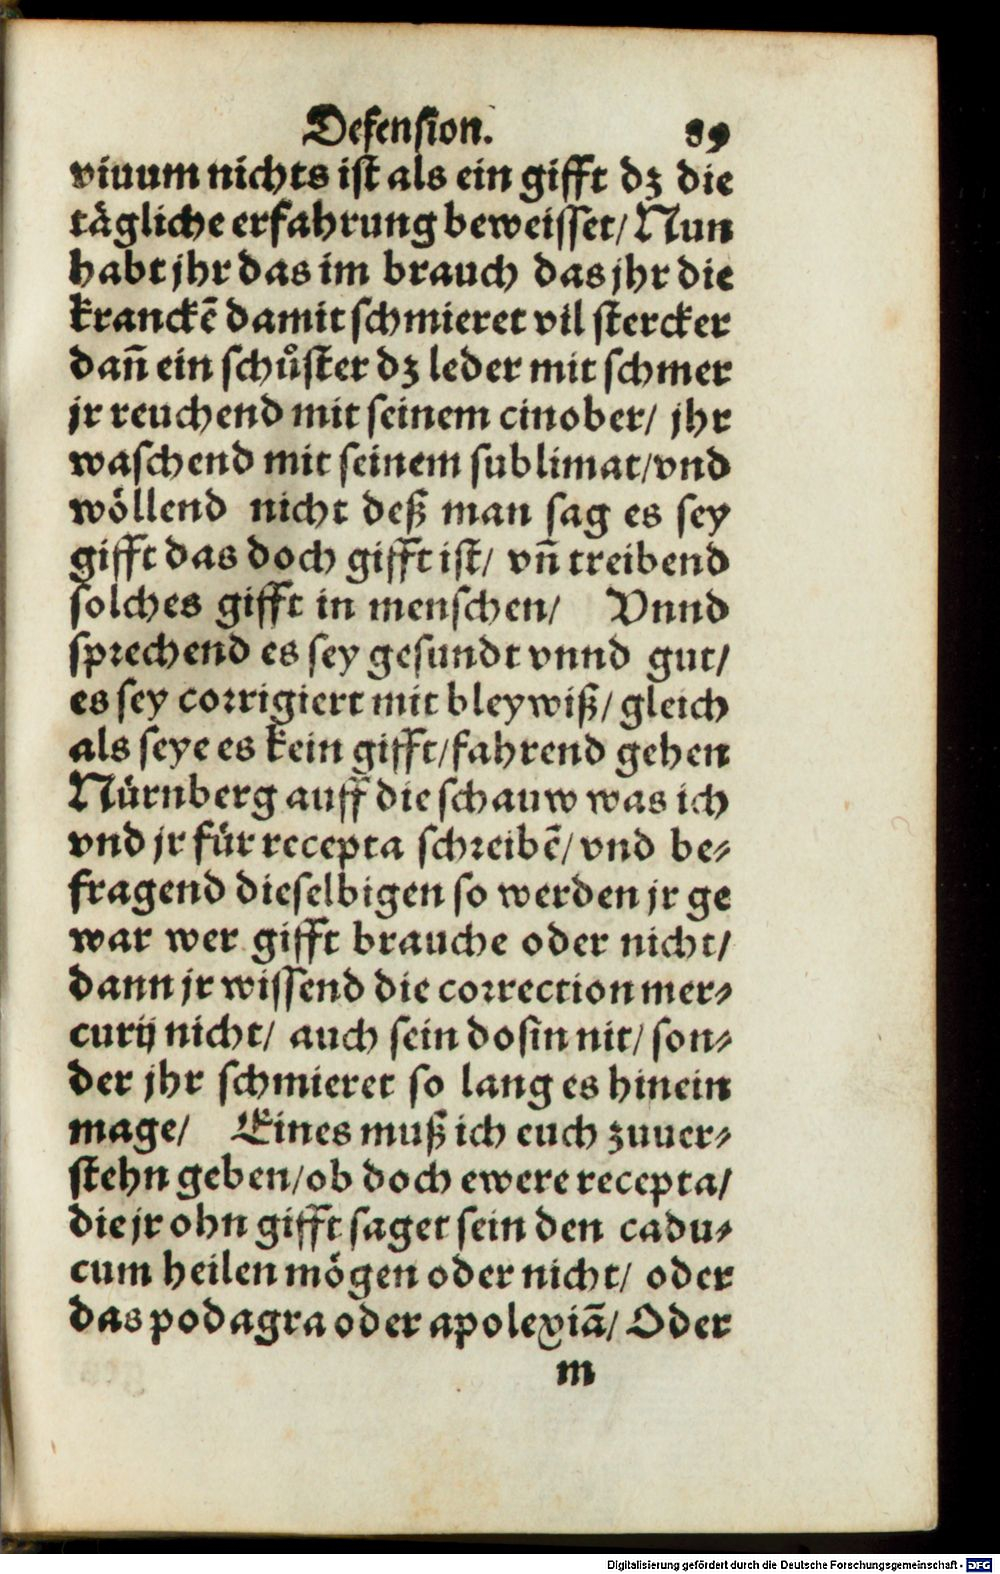 Defension. 89
viuum nichts ist als ein gifft dz die
tägliche erfahrung beweisset/ Nun
habt jhr das im brauch das jhr die
kranckē damit schmieret vil stercker
dañ ein schůster dz leder mit schmer
jr reuchend mit seinem cinober/ jhr
waschend mit seinem sublimat/vnd
wöllend nicht deß man sag es sey
gifft das doch gifft ist/ vñ treibend
solches gifft in menschen/ Vnnd
sprechend es sey gesundt vnnd gut/
es sey corrigiert mit bleywiß/ gleich
als seye es kein gifft/fahrend gehen
Nürnberg auff die schauw was ich
vnd jr für recepta schreibē/ vnd be-
fragend dieselbigen so werden jr ge
war wer gifft brauche oder nicht/
dann jr wissend die correction mer-
curij nicht/ auch sein dosin nit/ son-
der jhr schmieret so lang es hinein
mage/ Eines muß ich euch zuuer-
stehn geben/ob doch ewere recepta/
die jr ohn gifft saget sein den cadu-
cum heilen mögen oder nicht/ oder
das podagra oder apolexiā/ Oder
m
Digitalisierung gefördert durch die Deutsche Forschungsgemeinschaft - DFG